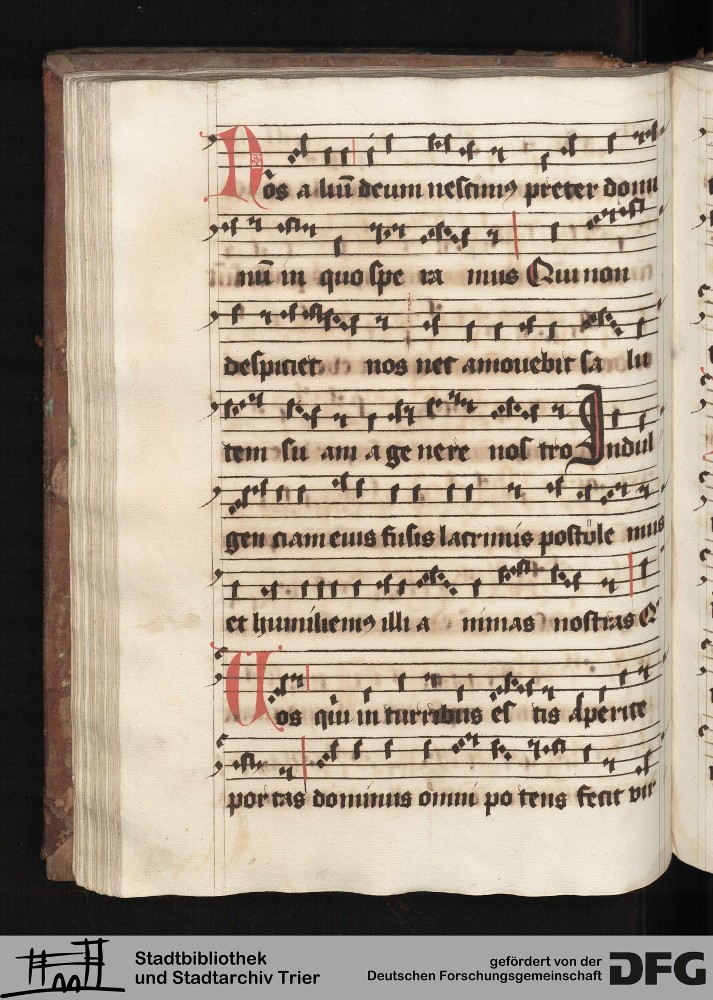 Nos aliū deum nescimꝰ preter domi
nū in quo spe ra mus Qui non
despiciet nos nec amouebit sa lu
tem su am a ge nere nos tro Indul
gen ciam eius fusis lacrimis postule mus
et humiliemꝰ illi a nimas nostras Q
Uos qui in turribus es tis Aperite
por tas dominus omni po tens fecit vir
Stadtbibliothek
und Stadtarchiv Trier
gefördert von der
Deutschen Forschungsgemeinschaft
DFG